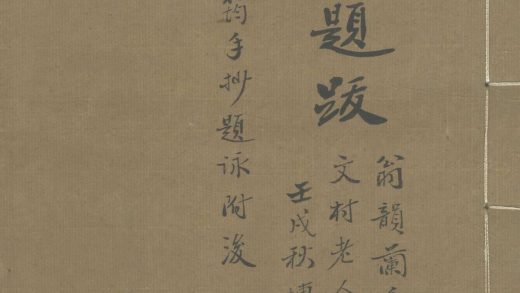 題跋
翁韻蘭
文村老人
壬戌秋
筠手抄題咏附後